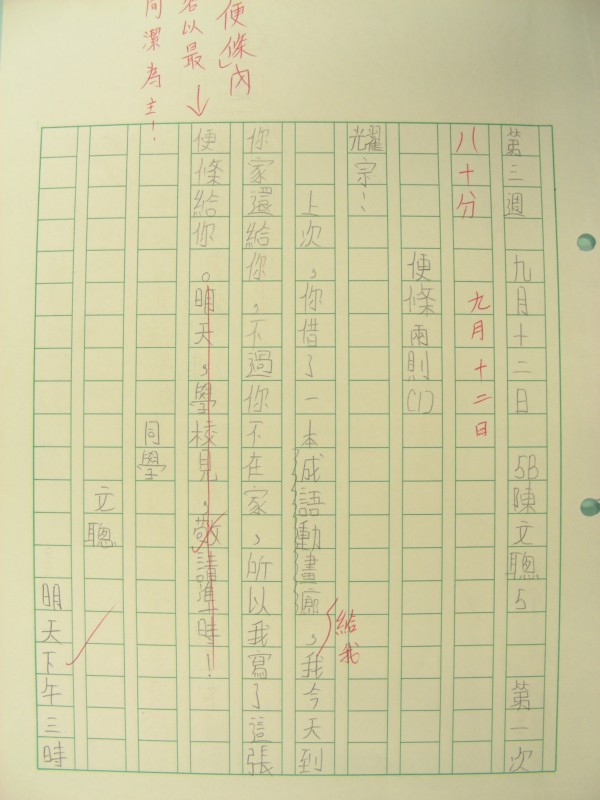 第三週 九月十二日 5B陳文聰5 第一次
八十分 九月十二日
便條兩則(1)
耀宗：
上次，你借了一本成語動畫廊，我今天到
給我
你家還給你，不過你不在家，所以我寫了這張
便條給你。明天，學校見，敬請準時！
同學
文聰
明天下午三時
便條」內
容以最
簡潔為主！